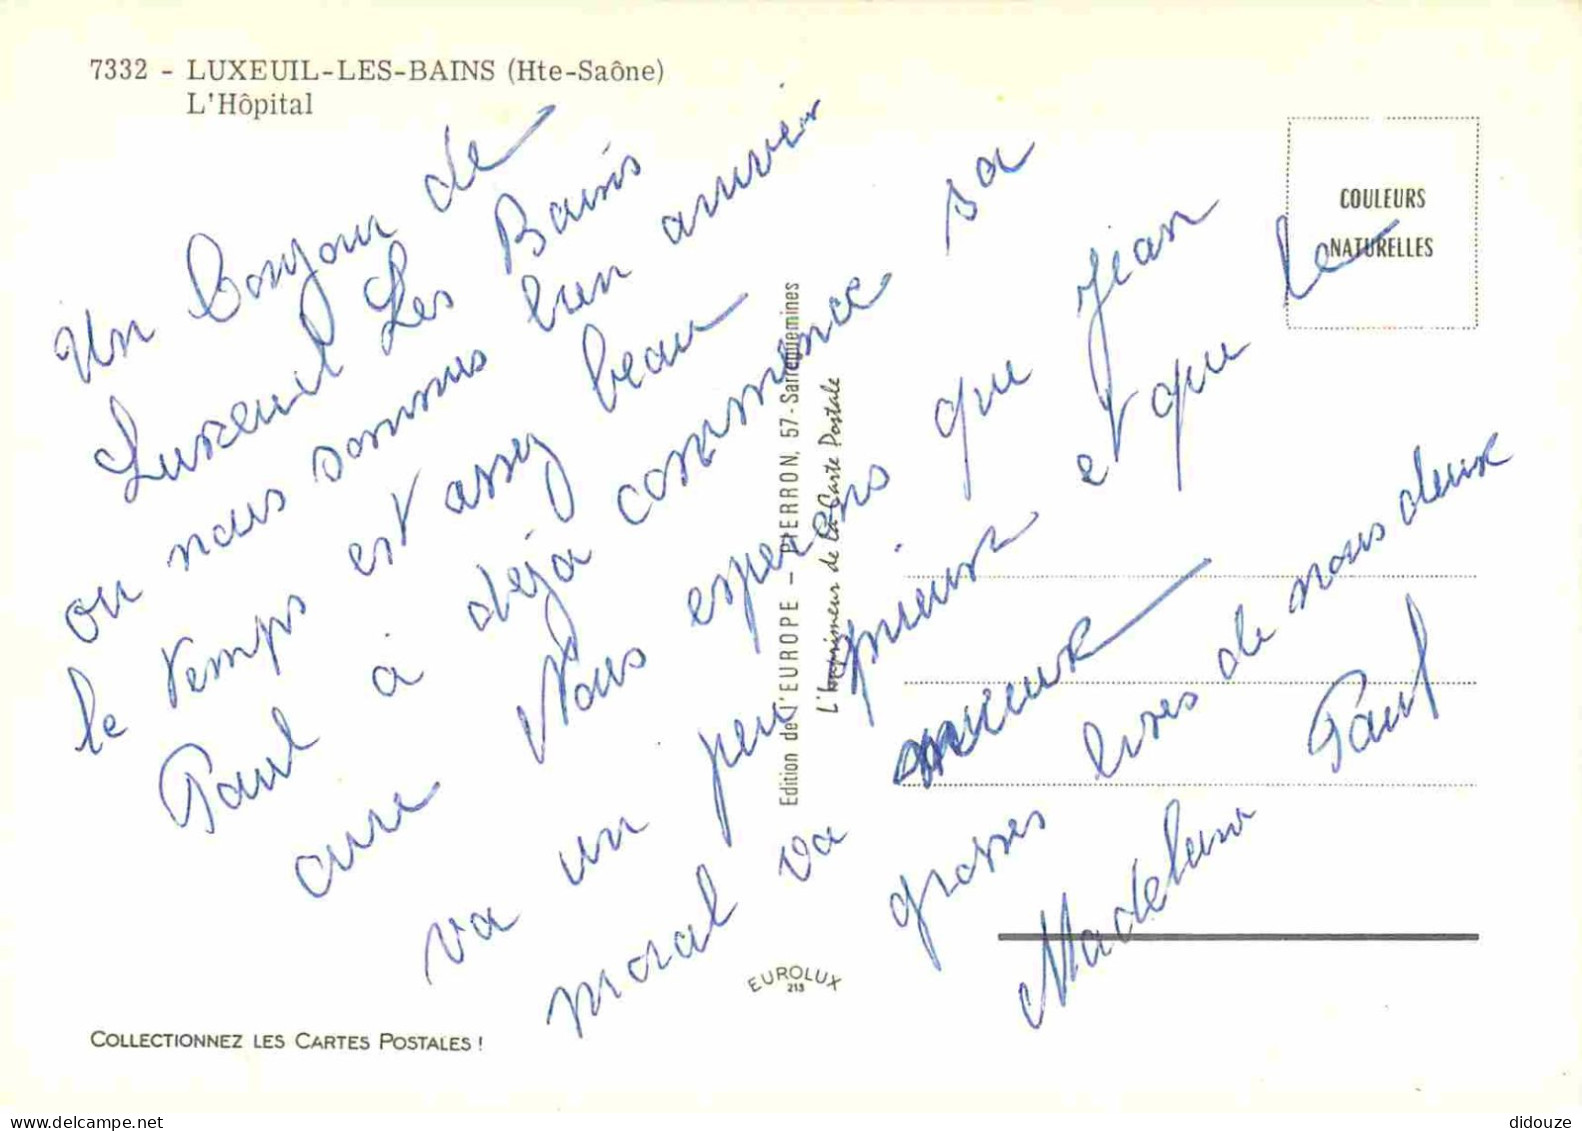 7332 - LUXEUIL-LES-BAINS (Hte-Saône)
L'Hôpital
COULEURS
NATURELLES
Un Bonjour de
Luxeuil Les Bains
ou nous sommes bien arriver
le temps est assez beau
Paul a déjà commence sa
cure Nous esperons que Jean
va un peu mieux et que le
moral va mieux
grosses bises de nous deux
Madeleine Paul
Edition de l'EUROPE - PIERRON, 57-Sarreguemines
L'Imprimeur de la Carte Postale
EUROLUX
213
COLLECTIONNEZ LES CARTES POSTALES !
didouze